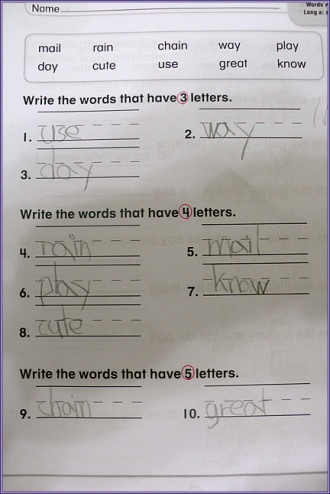 Name
Words w
Long a: a
mail rain chain way play
day cute use great know
Write the words that have 3 letters.
1. use 2. way
3. day
Write the words that have 4 letters.
4. rain 5. mail
6. play 7. know
8. cute
Write the words that have 5 letters.
9. chain 10. great